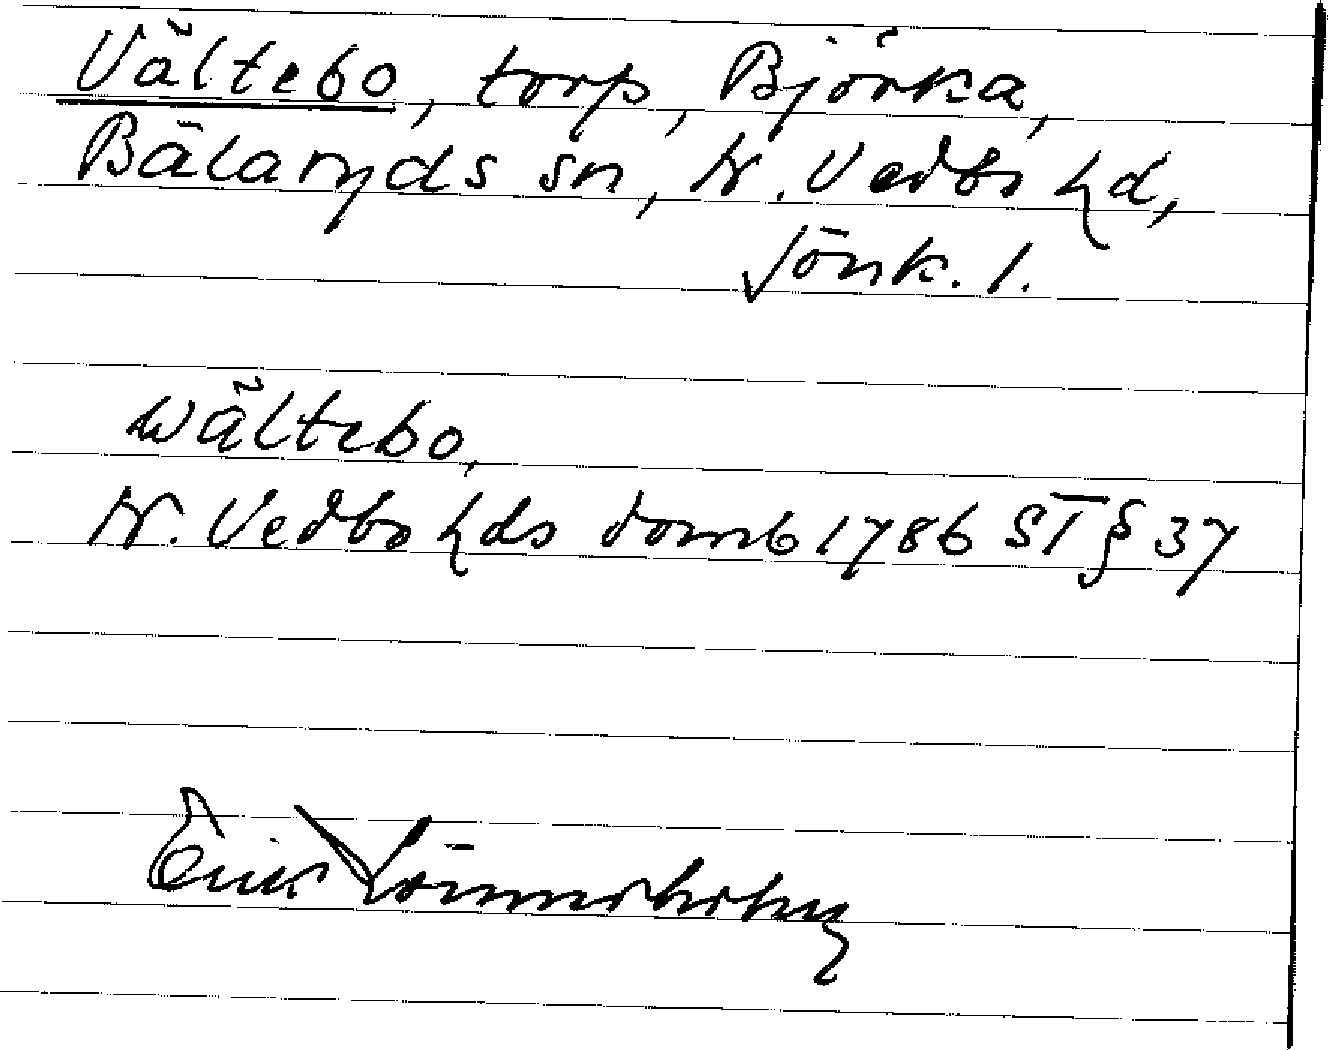 Vältebo, torp, Björka,
Bälaryds sn, N. Vedbo hd,
Jönk. l.
Wältebo,
N. Vedbo hds domb 1786 ST § 37
Erik Lönnerholm